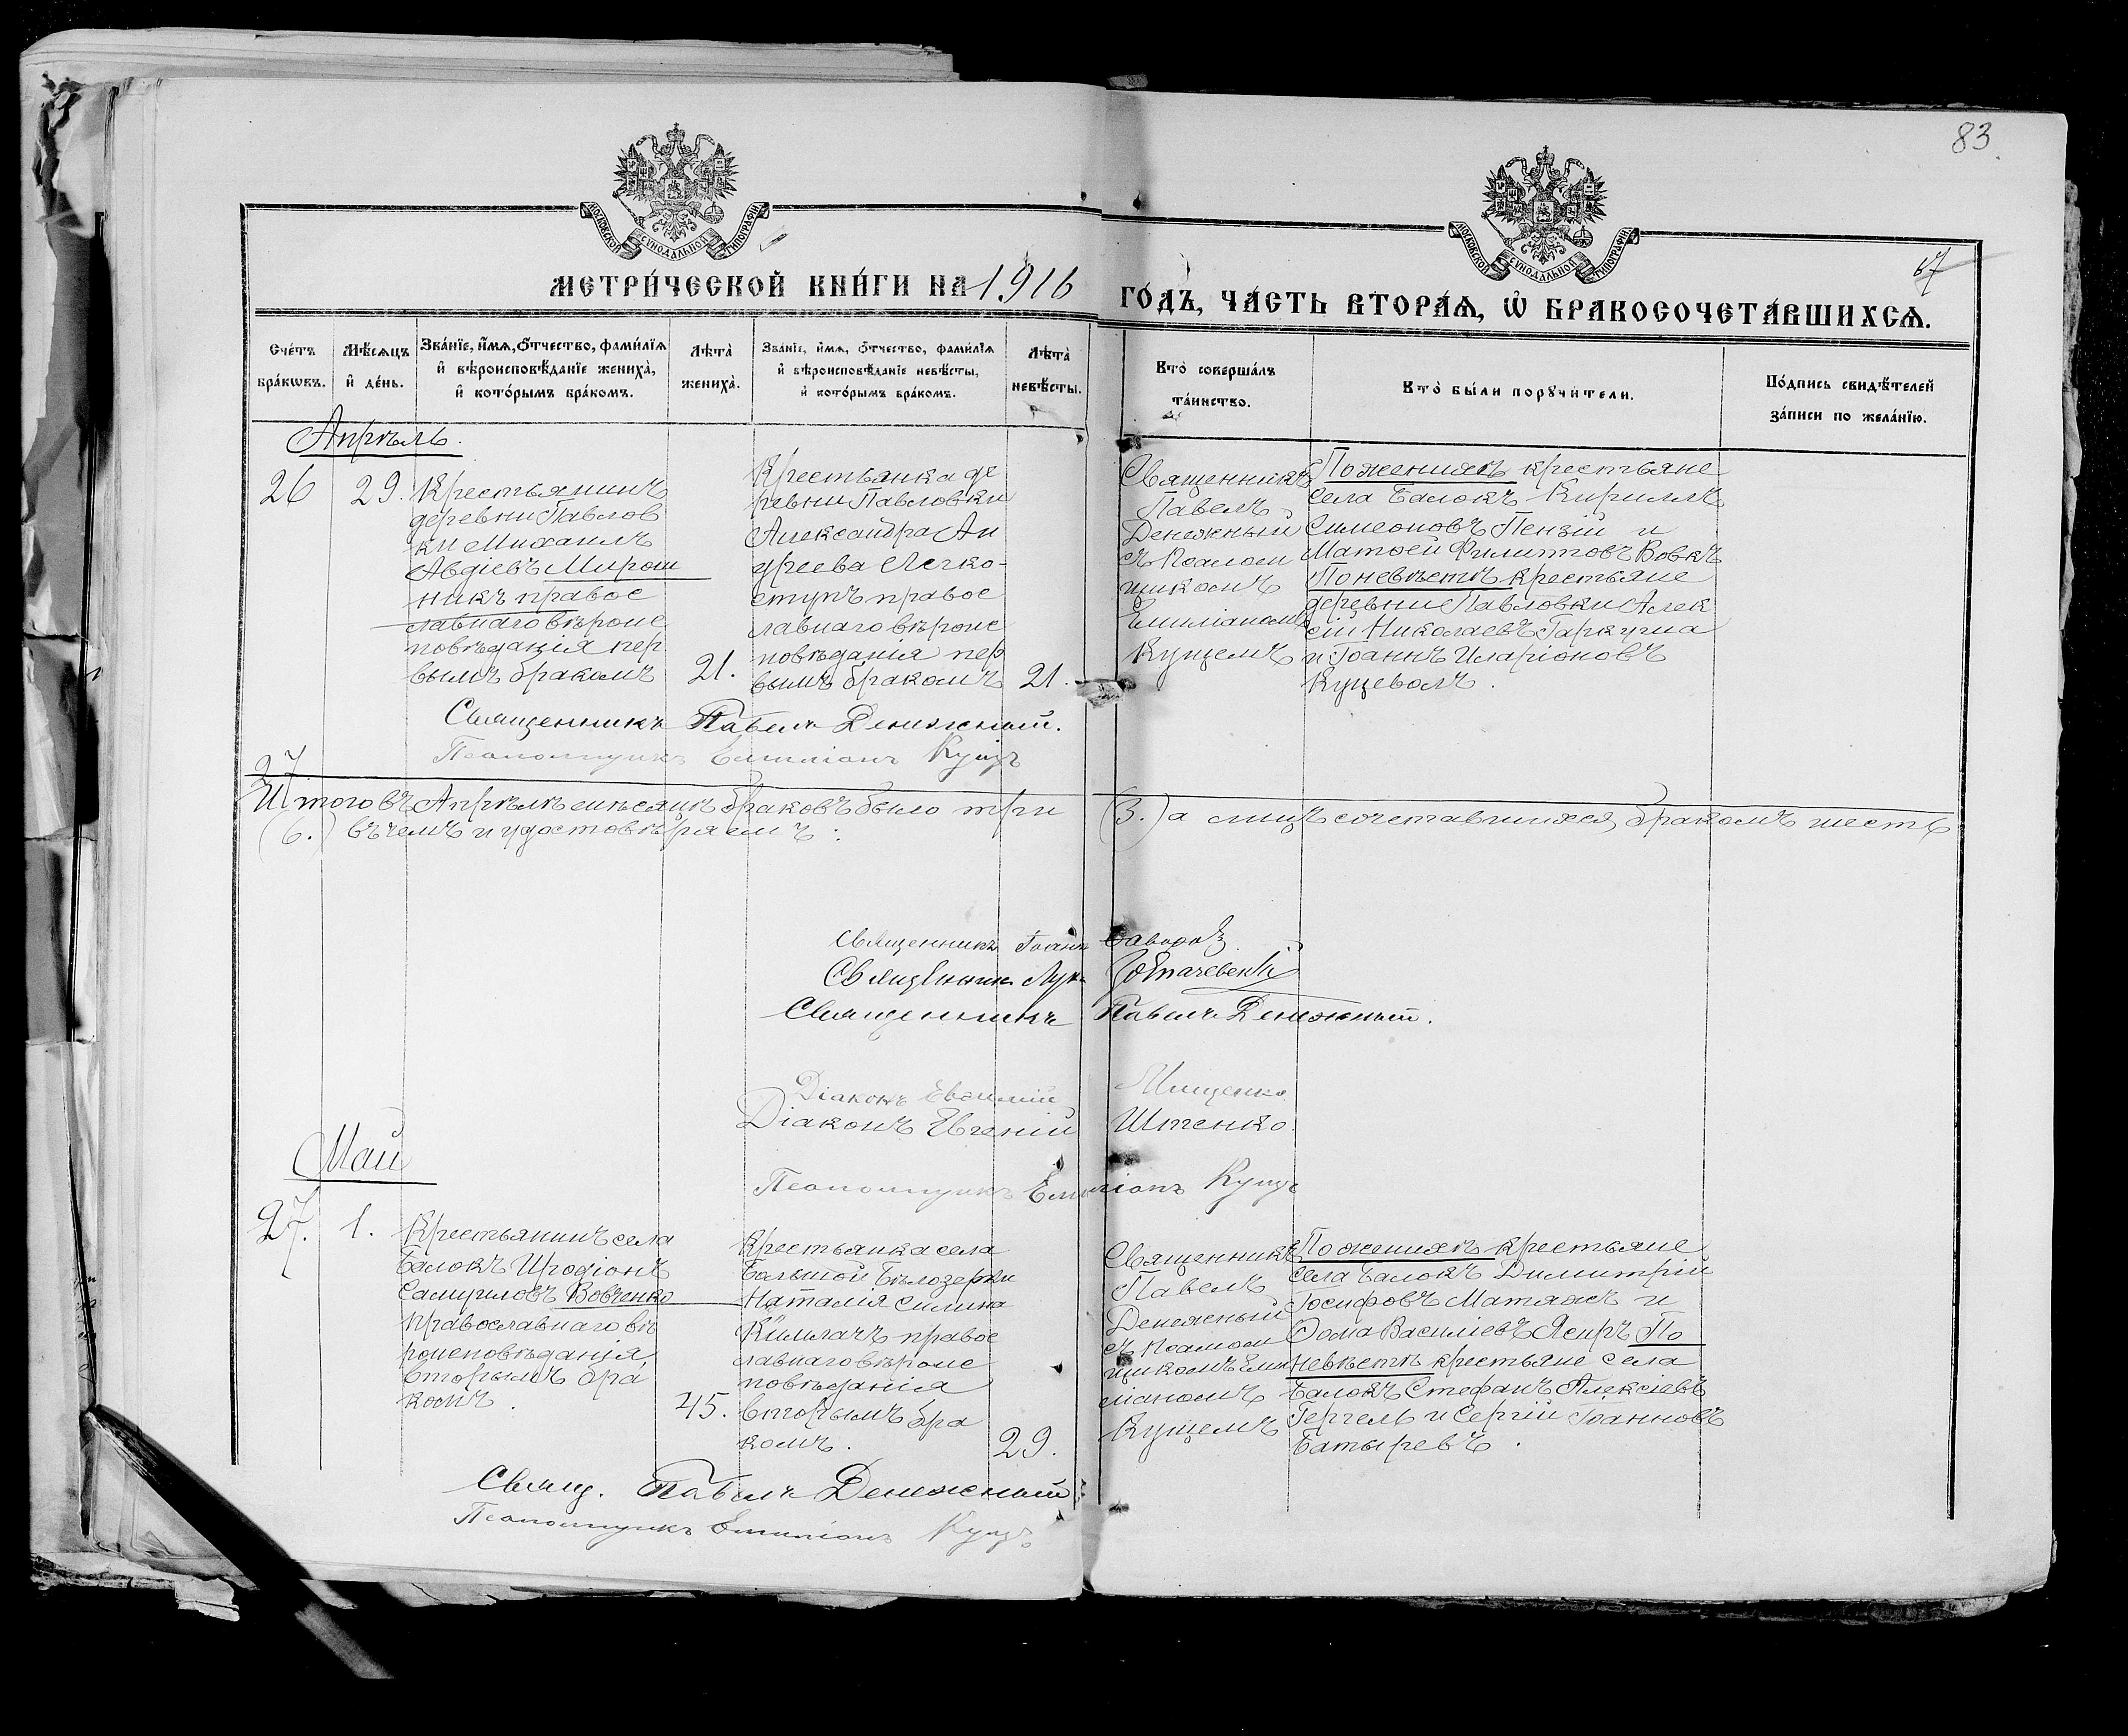 83
МОСКОВСКОЙ СѴНОДАЛЬНОЙ ТИПОГРАФІИ
МОСКОВСКОЙ СѴНОДАЛЬНОЙ ТИПОГРАФІИ
67
МЕТРИ́ЧЕСКОЙ КНИ́ГИ НА 1916 ГО́ДЪ, ЧА́СТЬ ВТОРА́Ѧ, Ѡ҆ БРАКОСОЧЕТА́ВШИХСѦ.
Сче́тъ
бра́кѡвъ.
Мѣ́сѧцъ
и҆ де́нь.
Зва́нїе, и҆́мѧ, ѻ҆́тчество, фами́лїѧ
и҆ вѣроисповѣ́данїе жениха̀,
и҆ кото́рымъ бра́комъ.
Лѣта̀
жениха̀.
Зва́нїе, и҆́мѧ, ѻ҆́тчество, фами́лїѧ
и҆ вѣроисповѣ́данїе невѣ́сты,
и҆ кото́рымъ бра́комъ.
Лѣта̀
невѣ́сты.
Кто̀ соверша́лъ
та́инство.
Кто̀ бы́ли порꙋчи́тели.
По́дпись свидѣ́телей
за́писи по жела́нїю.
Апрѣль.
26
29.
Крестьянинъ
деревни Павлов
ки Михаилъ
Авдіевъ Мирош
никъ правос
лавнаго вѣроис
повѣданія пер
вымъ бракомъ
21.
Крестьянка де
ревни Павловки
Александра Ан
дреева Легко-
ступъ правос
лавнаго вѣроис
повѣданія пер
вымъ бракомъ
21.
Священникъ
Павелъ
Денежный
съ Псалом
щикомъ
Емиліаномъ
Куцемъ
По женихѣ крестьяне
села Балокъ Кириллъ
Симеоновъ Пензій и
Матѳей Филипповъ Вовкъ
По невѣстѣ крестьяне
деревни Павловки Алек
сій Николаевъ Гаркуша
и Іоаннъ Иларіоновъ
Куцеволъ.
Священникъ Павелъ Денежный.
Псаломщикъ Емиліанъ Куцъ
27
Итого въ Апрѣлѣ мѣсяцѣ браковъ было три (3.) а лицъ сочетавшихся бракомъ шесть
(6.) въ чемъ и удостовѣряемъ:
Священникъ Іоаннъ
Священникъ Лука
Священникъ Павелъ Денежный.
Діаконъ Евѳимій Мищенко
Діаконъ Евгеній Штенко.
Псаломщикъ Емиліанъ Куцъ
Май
27.
1.
Крестьянинъ села
Балокъ Иродіонъ
Самуиловъ Вовченко
православнаго вѣ
роисповѣданія,
вторымъ бра
комъ.
45.
Крестьянка села
Большой Бѣлозерки
Наталія Силина
правос
лавнаго вѣроис
повѣданія
вторымъ бра
комъ.
29.
Священникъ
Павелъ
Денежный
съ Псалом
щикомъ Еми
ліаномъ
Куцемъ
По женихѣ крестьяне
села Балокъ Димитрій
Іосифовъ Матяжъ и
Ѳома Василіевъ Ясиръ По
невѣстѣ крестьяне села
Балокъ Стефанъ Алексіевъ
Гергель и Сергій Іоанновъ
Батыревъ.
Свящ. Павелъ Денежный
Псаломщикъ Емиліанъ Куцъ